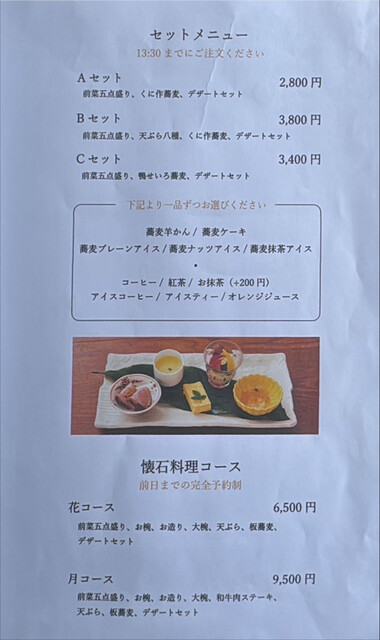 セットメニュー
13:30 までにご注文ください
Aセット 2,800円
前菜五点盛り、くに作蕎麦、デザートセット
Bセット 3,800円
前菜五点盛り、天ぷら八種、くに作蕎麦、デザートセット
Cセット 3,400円
前菜五点盛り、鴨せいろ蕎麦、デザートセット
下記より一品ずつお選びください
蕎麦羊かん / 蕎麦ケーキ
蕎麦プレーンアイス / 蕎麦ナッツアイス / 蕎麦抹茶アイス
・
コーヒー / 紅茶 / お抹茶 (+200円)
アイスコーヒー / アイスティー / オレンジジュース
懐石料理コース
前日までの完全予約制
花コース 6,500円
前菜五点盛り、お椀、お造り、大椀、天ぷら、板蕎麦、
デザートセット
月コース 9,500円
前菜五点盛り、お椀、お造り、大椀、和牛肉ステーキ、
天ぷら、板蕎麦、デザートセット